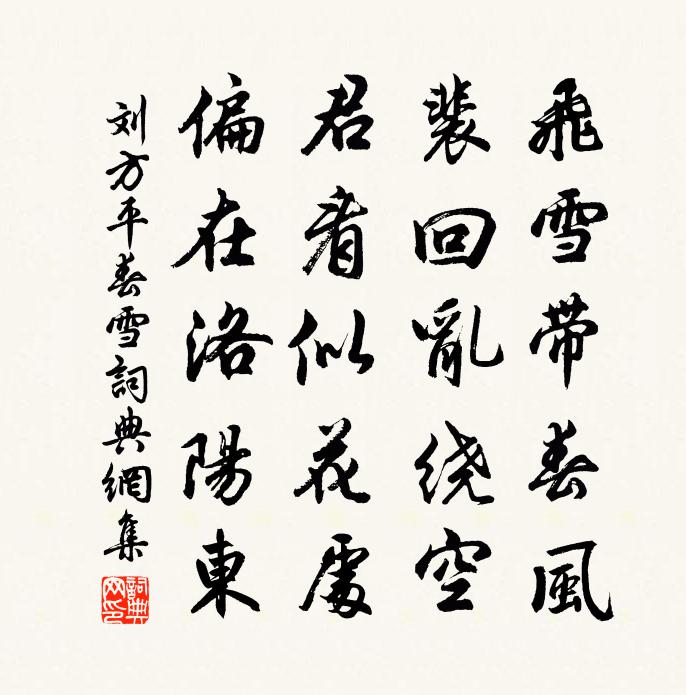 飛雪带春風
裴回亂绕空
君看似花處
偏在洛陽東
刘方平春雪詞典網集
詞典网印